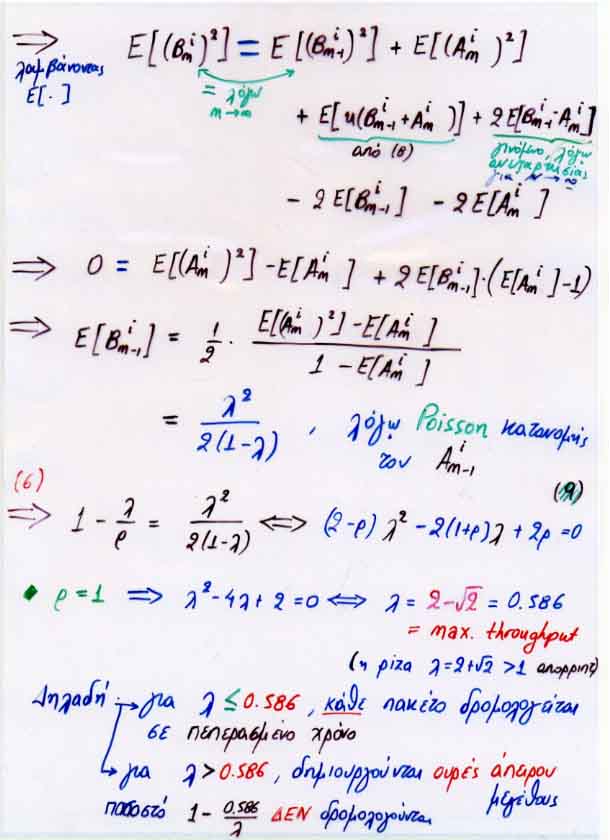 ⟹ E[(B_m^i)^2] = E[(B_{m-1}^i)^2] + E[(A_m^i)^2]
λαμβάνοντας
E[·]
= λόγω
m→∞
+ E[u(B_{m-1}^i + A_m^i)] + 2E[B_{m-1}^i · A_m^i]
από (8)
γινόμενο λόγω
ανεξαρτησίας
για N→∞
- 2E[B_{m-1}^i] - 2E[A_m^i]
⟹ 0 = E[(A_m^i)^2] - E[A_m^i] + 2E[B_{m-1}^i]·(E[A_m^i]-1)
⟹ E[B_{m-1}^i] = 1/2 · (E[(A_m^i)^2] - E[A_m^i]) / (1 - E[A_m^i])
= λ^2 / 2(1-λ) , λόγω Poisson κατανομής
του A_{m-1}^i
(9)
(6)
⟹ 1 - λ/ρ = λ^2 / 2(1-λ) ⟺ (2-ρ)λ^2 - 2(1+ρ)λ + 2ρ = 0
ρ=1 ⟹ λ^2 - 4λ + 2 = 0 ⟺ λ = 2-√2 = 0.586
= max. throughput
(η ρίζα λ=2+√2 >1 απορριπτ)
Δηλαδή → για λ ≤ 0.586 , κάθε πακέτο δρομολογείται
σε πεπερασμένο χρόνο
→ για λ > 0.586 , δημιουργούνται ουρές άπειρου
μεγέθους
ποσοστό 1 - 0.586/λ ΔΕΝ δρομολογούνται